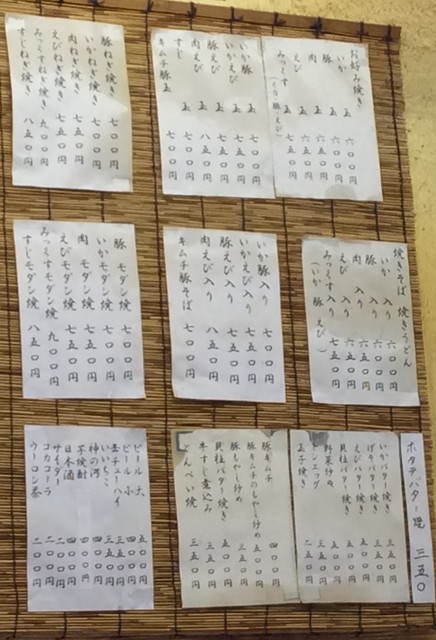 お好み焼き
いか 玉 六〇〇円
豚 玉 六〇〇円
肉 玉 六五〇円
えび 玉
みっくす 玉 七五〇円
(いか 豚 えび)
いか豚 玉 七〇〇円
いかえび 玉 七五〇円
豚えび 玉 七五〇円
肉えび 玉 八五〇円
すじ 玉 七〇〇円
キムチ豚玉 七〇〇円
豚ねぎ焼き 七〇〇円
いかねぎ焼き 七〇〇円
肉ねぎ焼き 七五〇円
えびねぎ焼き 七五〇円
みっくすねぎ焼き 九〇〇円
すじねぎ焼き 八五〇円
焼きそば 焼きうどん
いか 入り 六〇〇円
豚 入り 六〇〇円
肉 入り 六五〇円
えび 入り
みっくす 入り 七五〇円
(いか 豚 えび)
いか豚入り 七〇〇円
いかえび入り 七五〇円
豚えび入り 七五〇円
肉えび入り 八五〇円
キムチ豚そば 七〇〇円
豚 モダン焼 七〇〇円
いかモダン焼 七〇〇円
肉 モダン焼 七五〇円
えびモダン焼 七五〇円
みっくすモダン焼 九〇〇円
すじモダン焼 八五〇円
ホタテバター焼 三五〇
いかバター焼き 三五〇円
げそバター焼き
えびバター焼き
貝柱バター焼き
野菜炒め
ハムエッグ
玉子焼き
豚キムチ 四〇〇円
豚キムチのもやし炒め 五〇〇円
豚もやし炒め
貝柱バター焼き 五〇〇円
牛すじ煮込み
とんぺい焼 三五〇円
ビール 大 五〇〇円
ビール 小 四〇〇円
酎チューハイ 三五〇円
いいちこ 三五〇円
神の河 四〇〇円
芋焼酎 四〇〇円
日本酒 四〇〇円
サイダー 二〇〇円
コカコーラ 二〇〇円
ウーロン茶 二〇〇円